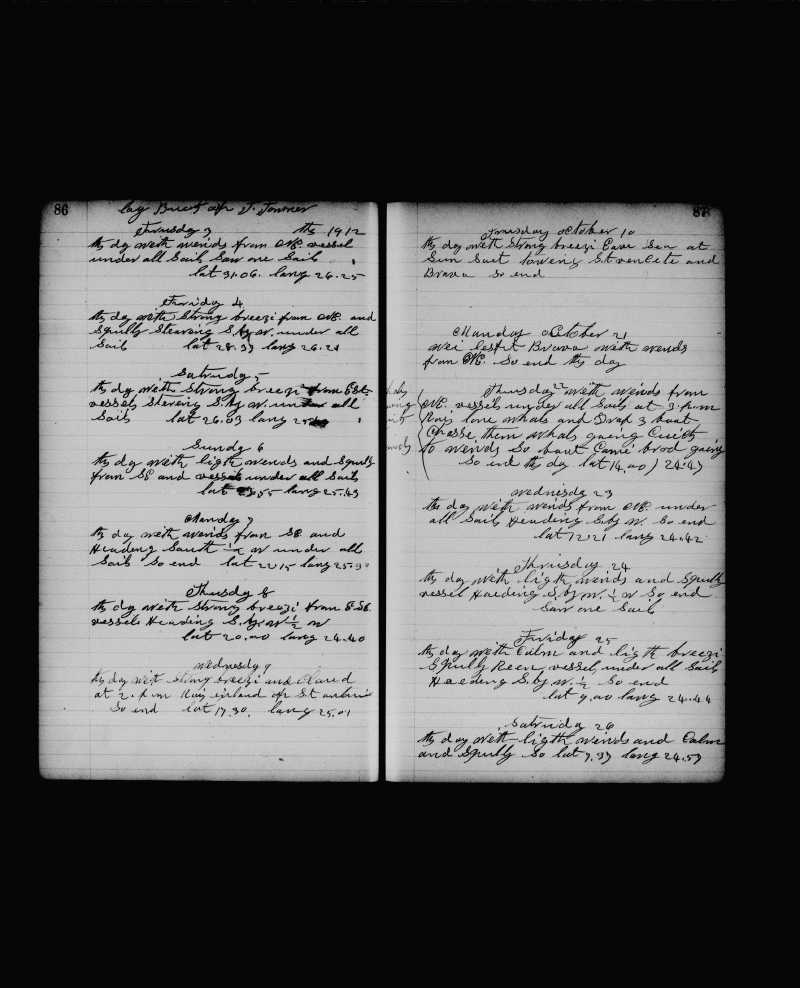 86
log Buck of J. Tonner
Thursdy 3 the 1912
the dog with wends from NE. vessel
under all Sail Saw one Sail
lat 31.06. long 26.25
Friday 4
the dog with Strong breezi from NE. and
Squlls Stearing S. by W. under all
Sails lat 28.59 long 26.21
Saturdy 5
the dog with Strong breezi from Est
vessels Stereng S. by W. under all
Sails lat 26.03 long
Sundy 6
the dog with ligth wends and Squls
from SE and vessel under all Sails
lat long 25.43
Mandy 7
the dog with wends from SE. and
Heading South ½ W under all
Sail So end lat 22.15 long 25.30
Thusdy 8
the dog with Strong breezi from E.SE.
vessels Heading S. by W ½ W
lat 20.00 long 24.40
wednesdy 9
the dog with Strong breezi and Clared
at 2. p.m Rais einland of St antonio
So end lat 17.30. long 25.01
87
Thusday october 10
the dog with Strong breezi Came San at
Sun Saet towering St venCete and
Brava So end
Manday october 21
wei lesft Brava with wends
from NE. So end the dog
Thusday 22 with wends from
NE. vessels under all Sails at 3 p.m
Rais lone whals and Drap 3 boat
Chasse them whals going Cuick
to wends So boat Came brod going
So end the dog lat 14.00 / 24.43
wednisdy 23
the dog with wends from NE. under
all Sails Heading S.by W. So end
lat 12.21 long 24.42
Thursday 24
the dog with ligth wends and Squlls
vessel Haeding S.by W. ½ W So end
Saw one Sail
Friday 25
the dog with Calm and ligth breezi
Squlls Reen, vessels under all Sails
Haeding S.by W. ½ So end
lat 9.00 long 24.44
Saturdy 26
the dog with ligth wends and Calm
and Squlls So lat 7.39 long 24.59